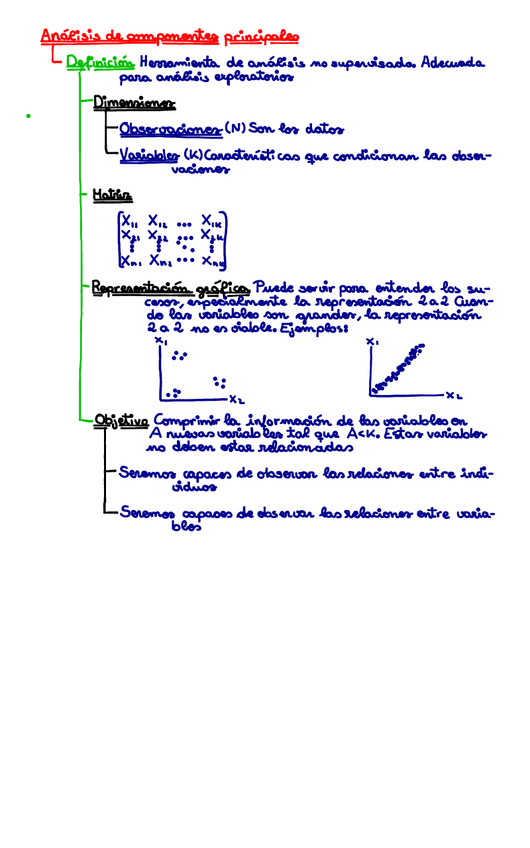 Análisis de componentes principales
Definición Herramienta de análisis no supervisado. Adecuada
para análisis exploratorios
Dimensiones
Observaciones (N) Son los datos
Variables (K) Características que condicionan las obser-
vaciones
Matriz
X11 X12 ... X1K
X21 X22 ... X2K
⋮ ⋮ ⋱ ⋮
Xn1 Xn2 ... Xnk
Representación gráfica Puede servir para entender los su-
cesos, especialmente la representación 2 a 2 Cuan-
do las variables son grandes, la representación
2 a 2 no es viable. Ejemplos:
X1 X1
X2 X2
Objetivo Comprimir la información de las variables en
A nuevas variables tal que A<K. Estas variables
no deben estar relacionadas
Seremos capaces de observar las relaciones entre indi-
viduos
Seremos capaces de observar las relaciones entre varia-
bles